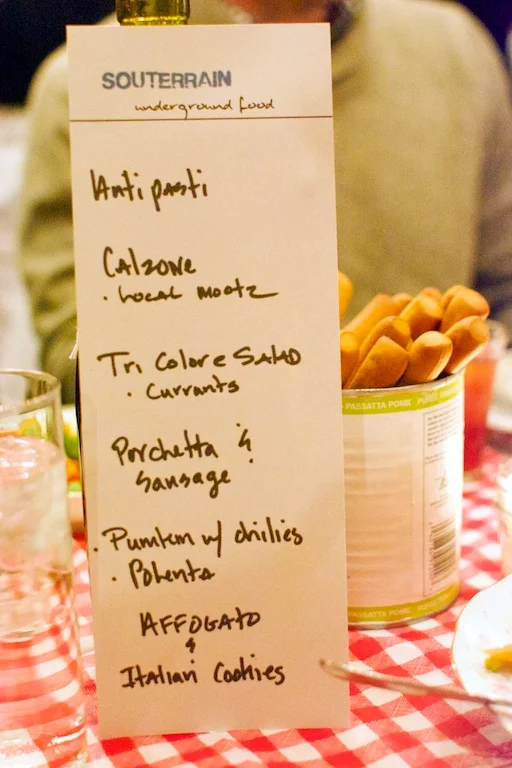 SOUTERRAIN
underground food
Antipasti
Calzone
· Local mootz
Tri Colore Salad
· Currants
Porchetta &
Sausage
· Pumkin w/ chilies
· Polenta
AFFOGATO
&
Italian Cookies
PASSATTA POMI
PASSATTA POMI